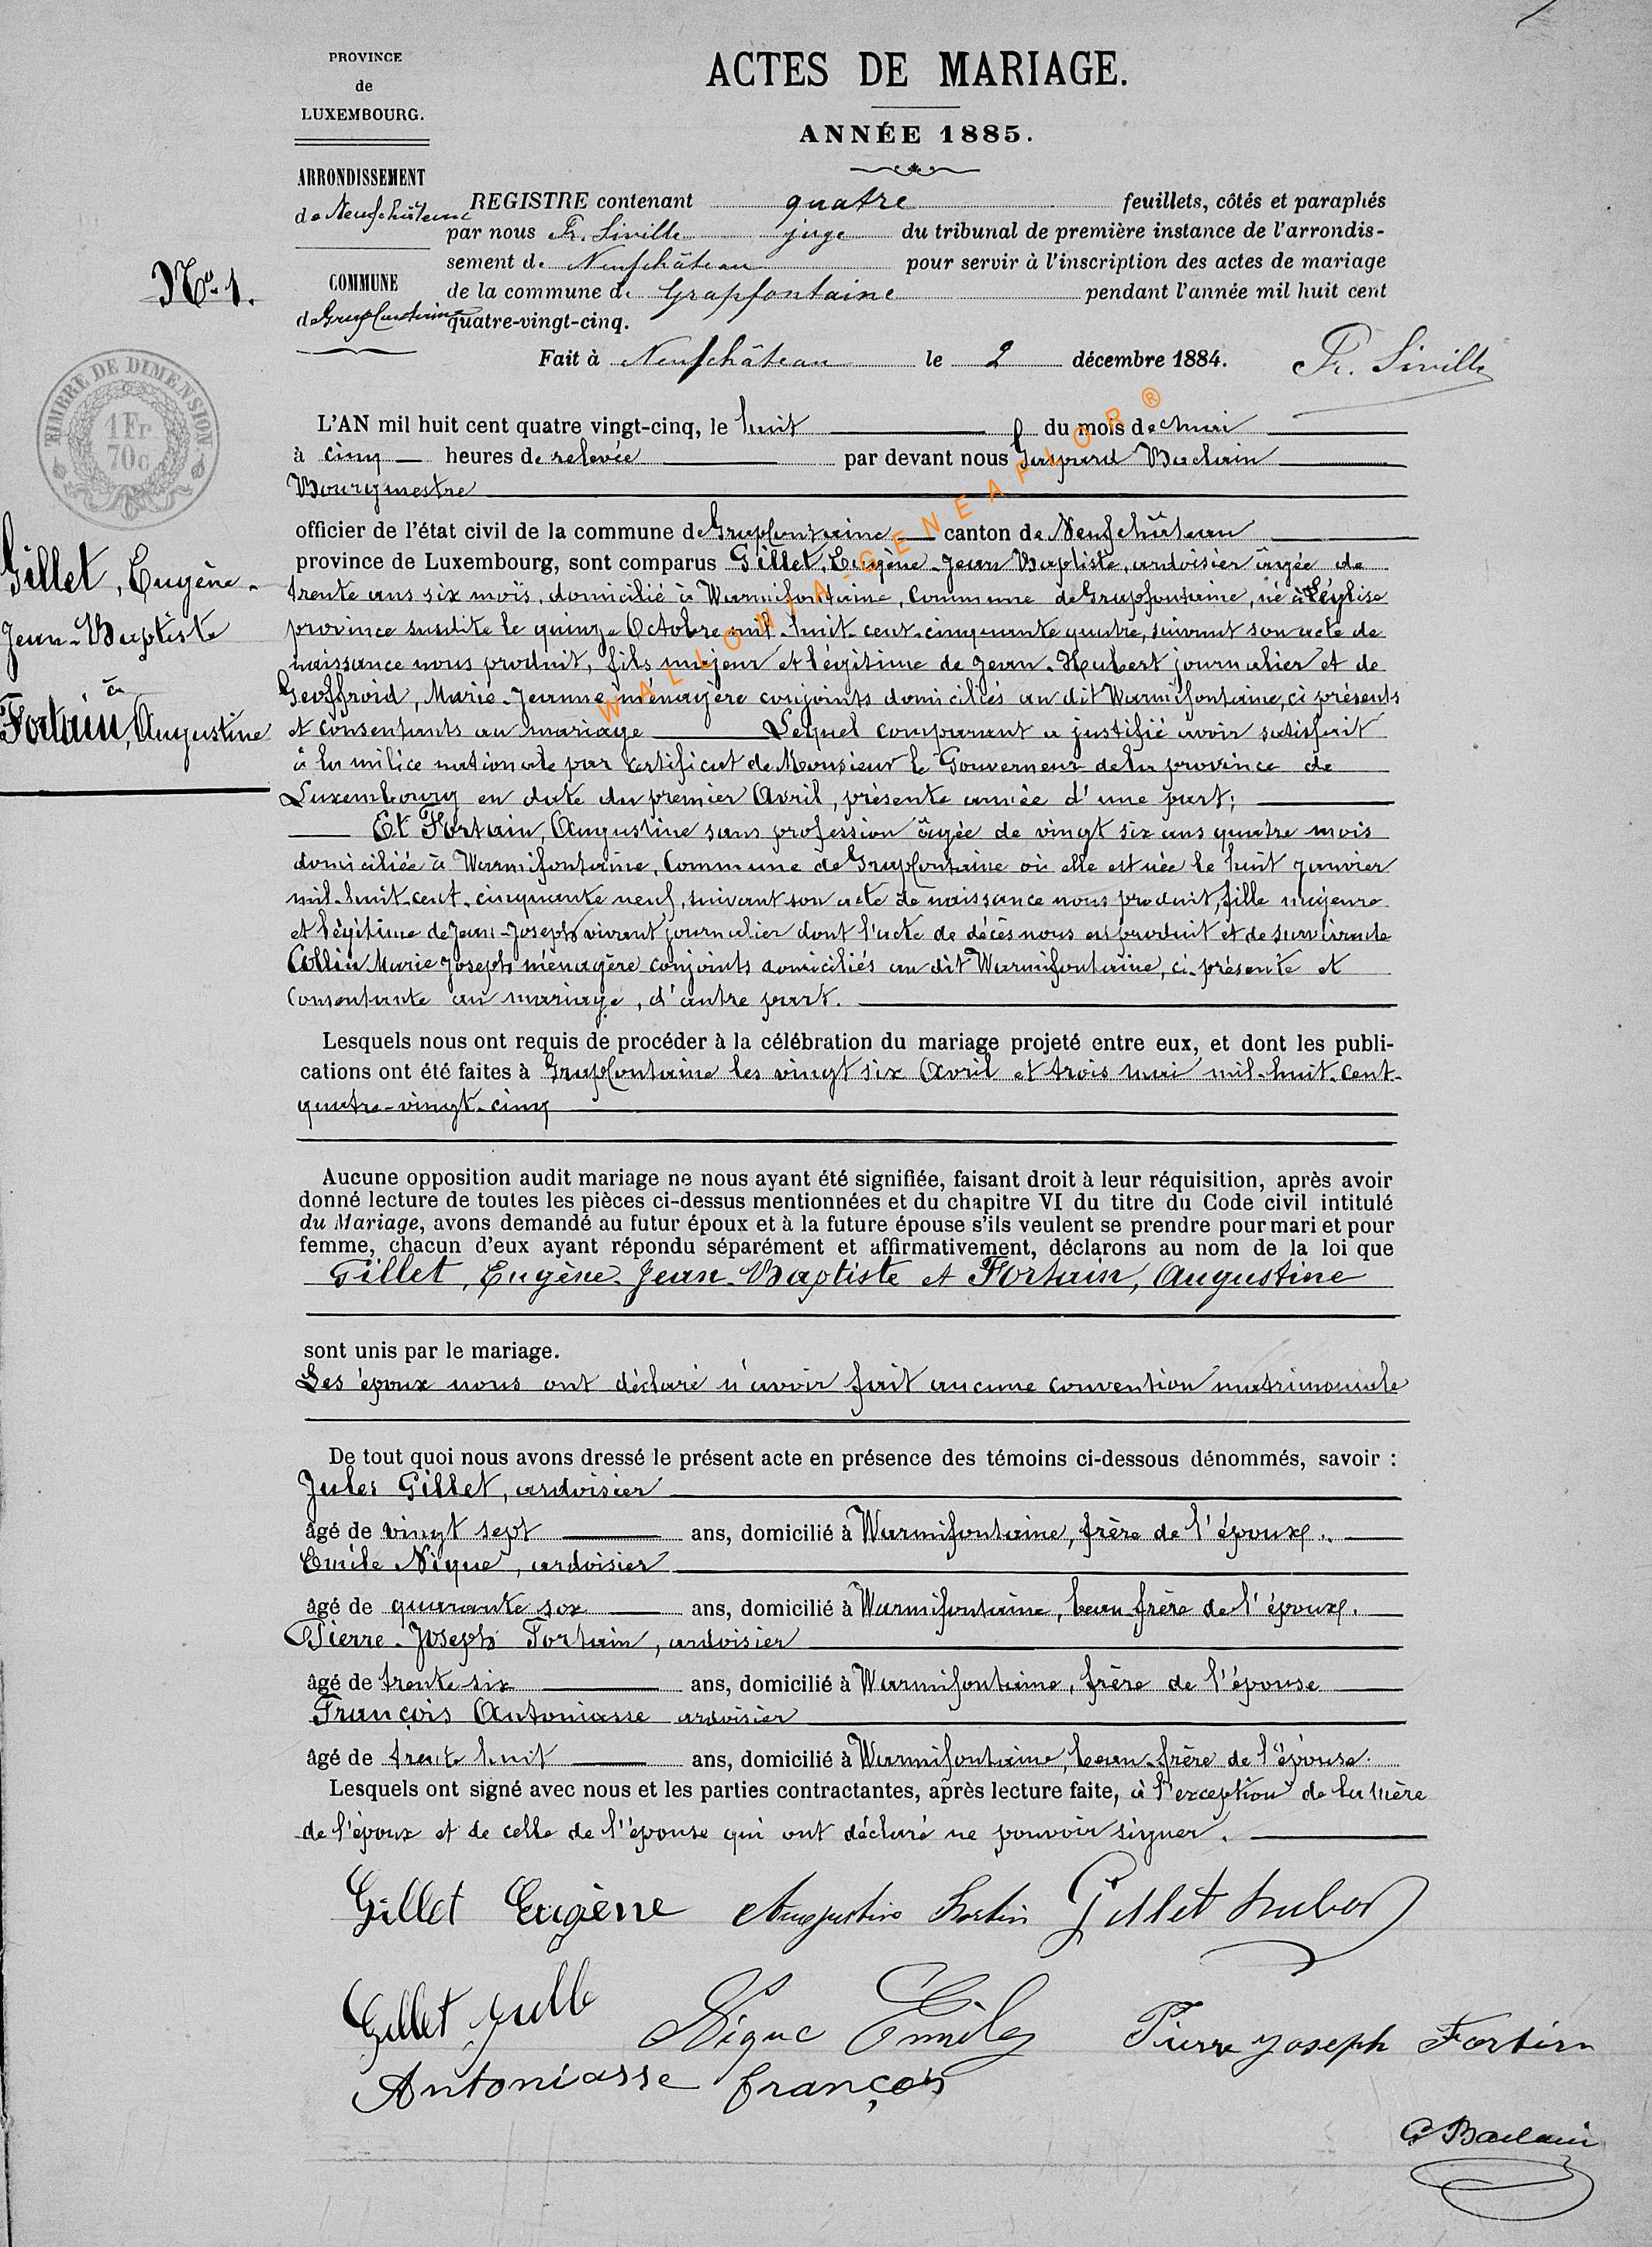 PROVINCE
de
LUXEMBOURG.
ACTES DE MARIAGE.
ANNÉE 1885.
ARRONDISSEMENT
de Neufchâteau
COMMUNE
de Grapfontaine
REGISTRE contenant quatre feuillets, côtés et paraphés
par nous Fr. Siville juge du tribunal de première instance de l'arrondis-
sement de Neufchâteau pour servir à l'inscription des actes de mariage
de la commune de Grapfontaine pendant l'année mil huit cent
quatre-vingt-cinq.
Fait à Neufchâteau le 2 décembre 1884. Fr. Siville
No. 1.
TIMBRE DE DIMENSION
1 Fr
70c
Gillet, Eugène-
Jean-Baptiste
à
Fortain, Augustine
L'AN mil huit cent quatre vingt-cinq, le huit du mois de mai
à cinq heures de relevée par devant nous Gaspard Baclain
Bourgmestre
officier de l'état civil de la commune de Grapfontaine canton de Neufchâteau
province de Luxembourg, sont comparus Gillet, Eugène-Jean Baptiste, ardoisier âgée de
trente ans six mois, domicilié à Warmifontaine, Commune de Grapfontaine, né à Léglise
province susdite le quinze Octobre mil-huit-cent-cinquante quatre, suivant son acte de
naissance nous produit, fils majeur et légitime de Jean-Hubert journalier et de
Geoffroid, Marie-Jeanne ménagère conjoints domiciliés au dit Warmifontaine, ci présents
et consentants au mariage Lequel comparant a justifié avoir satisfait
à la milice nationale par certificat de Monsieur le Gouverneur de la province de
Luxembourg en date du premier Avril, présente année d'une part;
Et Fortain, Augustine sans profession âgée de vingt six ans quatre mois
domiciliée à Warmifontaine, Commune de Grapfontaine où elle est née le huit Janvier
mil-huit-cent-cinquante neuf, suivant son acte de naissance nous produit, fille majeure
et légitime de Jean-Joseph vivant journalier dont l'acte de décès nous est produit et de survivante
Collin Marie Joseph ménagère conjoints domiciliés au dit Warmifontaine, ci-présente et
consentante au mariage, d'autre part.
Lesquels nous ont requis de procéder à la célébration du mariage projeté entre eux, et dont les publi-
cations ont été faites à Grapfontaine les vingt six Avril et trois mai mil-huit-cent-
quatre-vingt-cinq
Aucune opposition audit mariage ne nous ayant été signifiée, faisant droit à leur réquisition, après avoir
donné lecture de toutes les pièces ci-dessus mentionnées et du chapitre VI du titre du Code civil intitulé
du Mariage, avons demandé au futur époux et à la future épouse s'ils veulent se prendre pour mari et pour
femme, chacun d'eux ayant répondu séparément et affirmativement, déclarons au nom de la loi que
Gillet, Eugène-Jean-Baptiste et Fortain, Augustine
sont unis par le mariage.
Les époux nous ont déclaré n'avoir fait aucune convention matrimoniale
De tout quoi nous avons dressé le présent acte en présence des témoins ci-dessous dénommés, savoir :
Jules Gillet, ardoisier
âgé de vingt sept ans, domicilié à Warmifontaine, frère de l'époux.
Emile Nique, ardoisier
âgé de quarante six ans, domicilié à Warmifontaine, beau-frère de l'époux.
Pierre-Joseph Fortain, ardoisier
âgé de trente six ans, domicilié à Warmifontaine, frère de l'épouse
François Antoniasse ardoisier
âgé de trente huit ans, domicilié à Warmifontaine, beau-frère de l'épouse.
Lesquels ont signé avec nous et les parties contractantes, après lecture faite, à l'exception de la mère
de l'époux et de celle de l'épouse qui ont déclaré ne pouvoir signer.
Gillet Eugène Augustine Fortin Gillet hubert
Gillet jull Nique Emile Pierre Joseph Fortin
Antoniasse françois
G Baclain
WALLONIA-GENEAFLOR ®